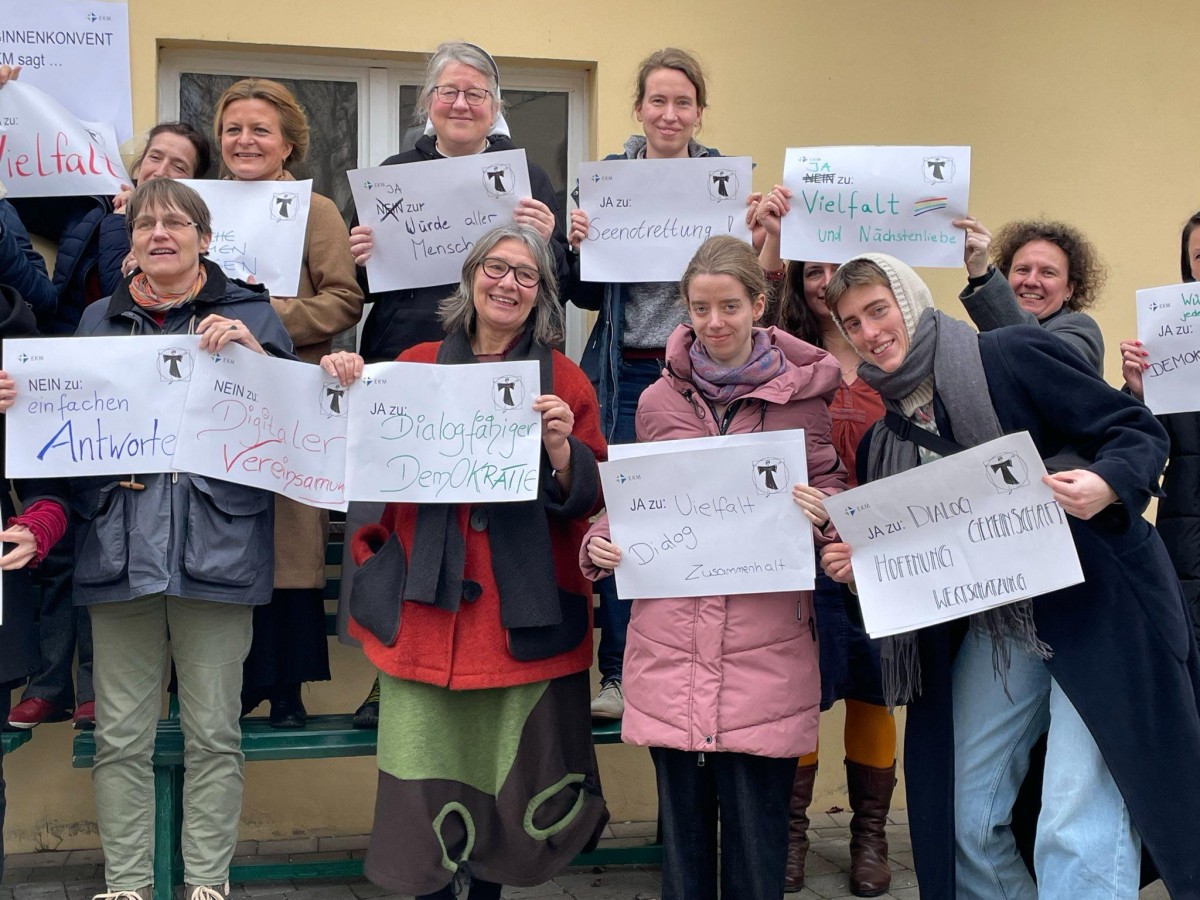 EKM
INNENKONVENT
KM sagt ...
zu:
Vielfalt
EKM
JA
NEIN zur
Würde aller
Mensch
EKM
JA zu:
Seenotrettung!
EKM
JA
NEIN zu:
Vielfalt
und Nächstenliebe
EKM
NEIN zu:
einfachen
Antworte
EKM
NEIN zu:
Digitaler
Vereinsamun
EKM
JA zu:
Dialogfähiger
DemOKRATIE
EKM
JA zu: Vielfalt
Dialog
Zusammenhalt
EKM
JA zu: DIALOG
GEMEINSCHAFT
HOFFNUNG
WERTSCHÄTZUNG
EKM
Wü
jede
JA zu:
DEMOK